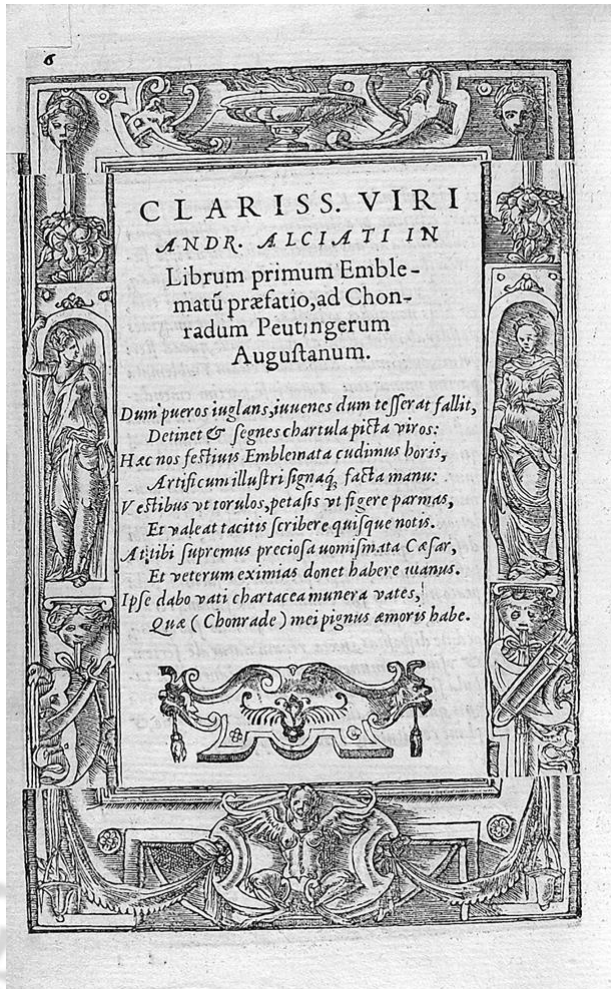 6
CLARISS. VIRI
ANDR. ALCIATI IN
Librum primum Emble-
matū præfatio, ad Chon-
radum Peutingerum
Augustanum.
Dum pueros iuglans, iuvenes dum tesserat fallit,
Detinet & segnes chartula picta viros:
Hæc nos festivis Emblemata cudimus horis,
Artificum illustri signaq́, facta manu:
Vestibus vt torulos, petasis vt figere parmas,
Et valeat tacitis scribere quisque notis.
At tibi supremus preciosa nomismata Cæsar,
Et veterum eximias donet habere manus.
Ipse dabo vati chartacea munera vates,
Quæ (Chonrade) mei pignus amoris habe.